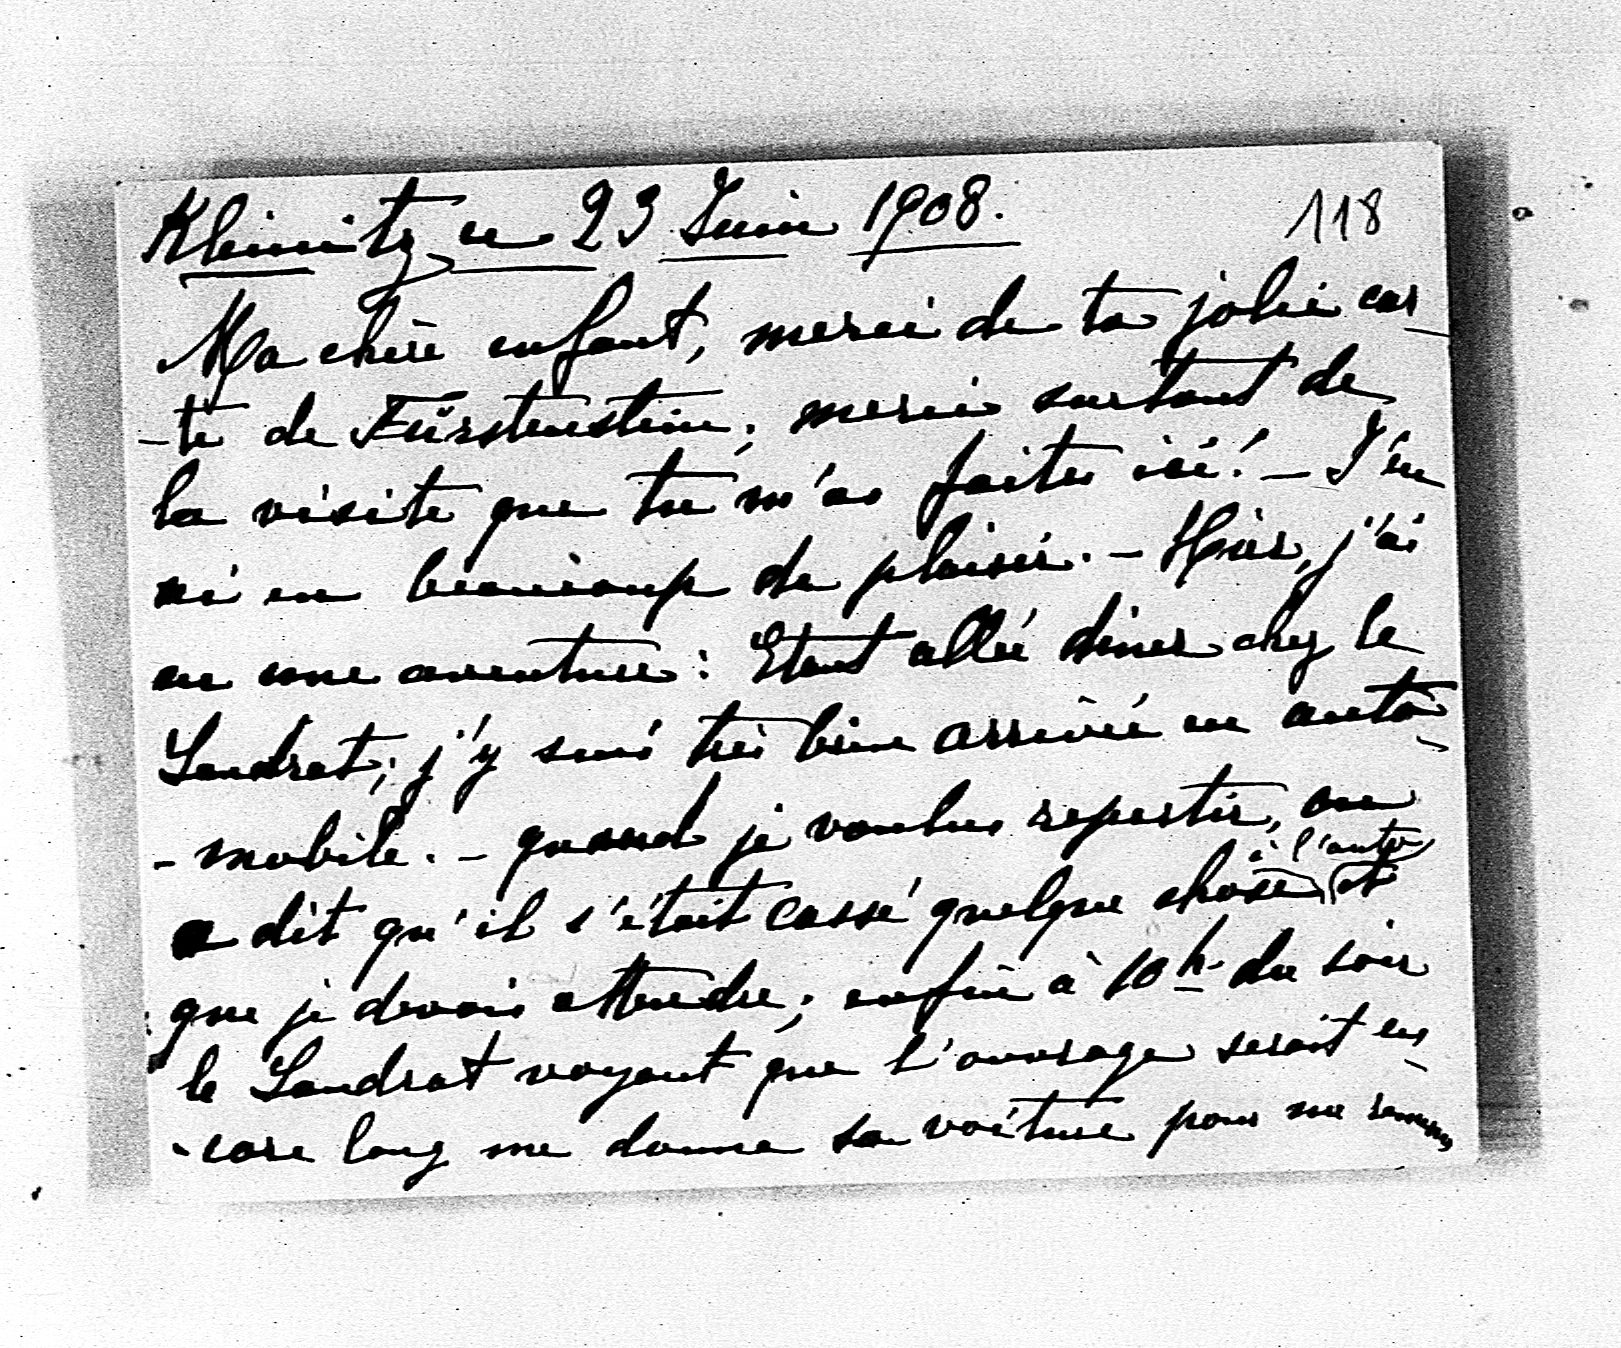 Kleinitz ce 23 Juin 1908. 118
Ma chère enfant, merci de ta jolie car
-te de Fürstenstein; merci surtout de
la visite que tu m'as faites ici! - J'en
ai eu beaucoup de plaisir. - Hier, j'ai
eu une aventure: Etant allée diner chez le
Landrat; j'y suis très bien arrivée en auto
- mobile. - quand je voulus repartir, on
à l'auto
a dit qu'il s'était cassé quelque chose et
que je devais attendre; enfin à 10 h. du soir
le Landrat voyant que l'ouvrage serait en
-core long me donna sa voiture pour me ramener